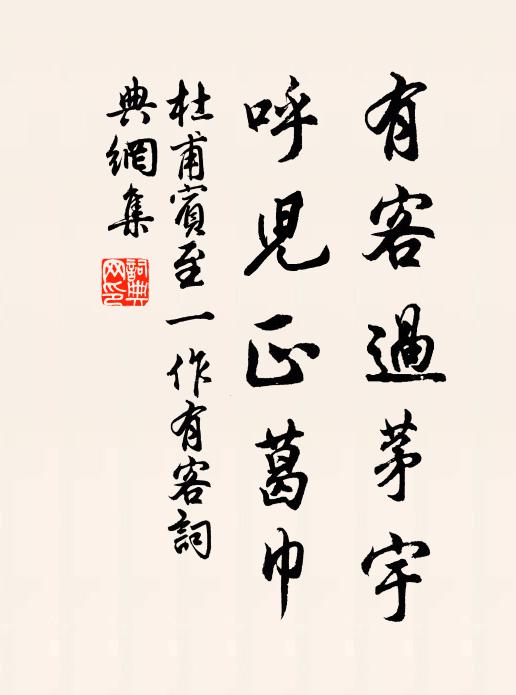 有客過茅宇
呼児正葛巾
杜甫賓至一作有客詞
典網集
詞典网印